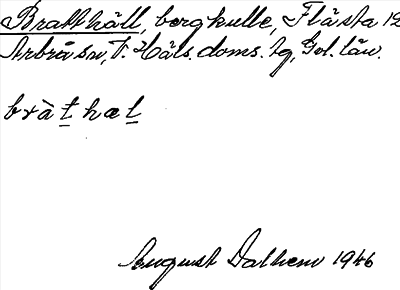 Bratthäll, bergkulle, Flästa 12
Arbrå sn, V. Häls. doms. tg, Gvl. län.
bràt hæl
August Dalhem 1946